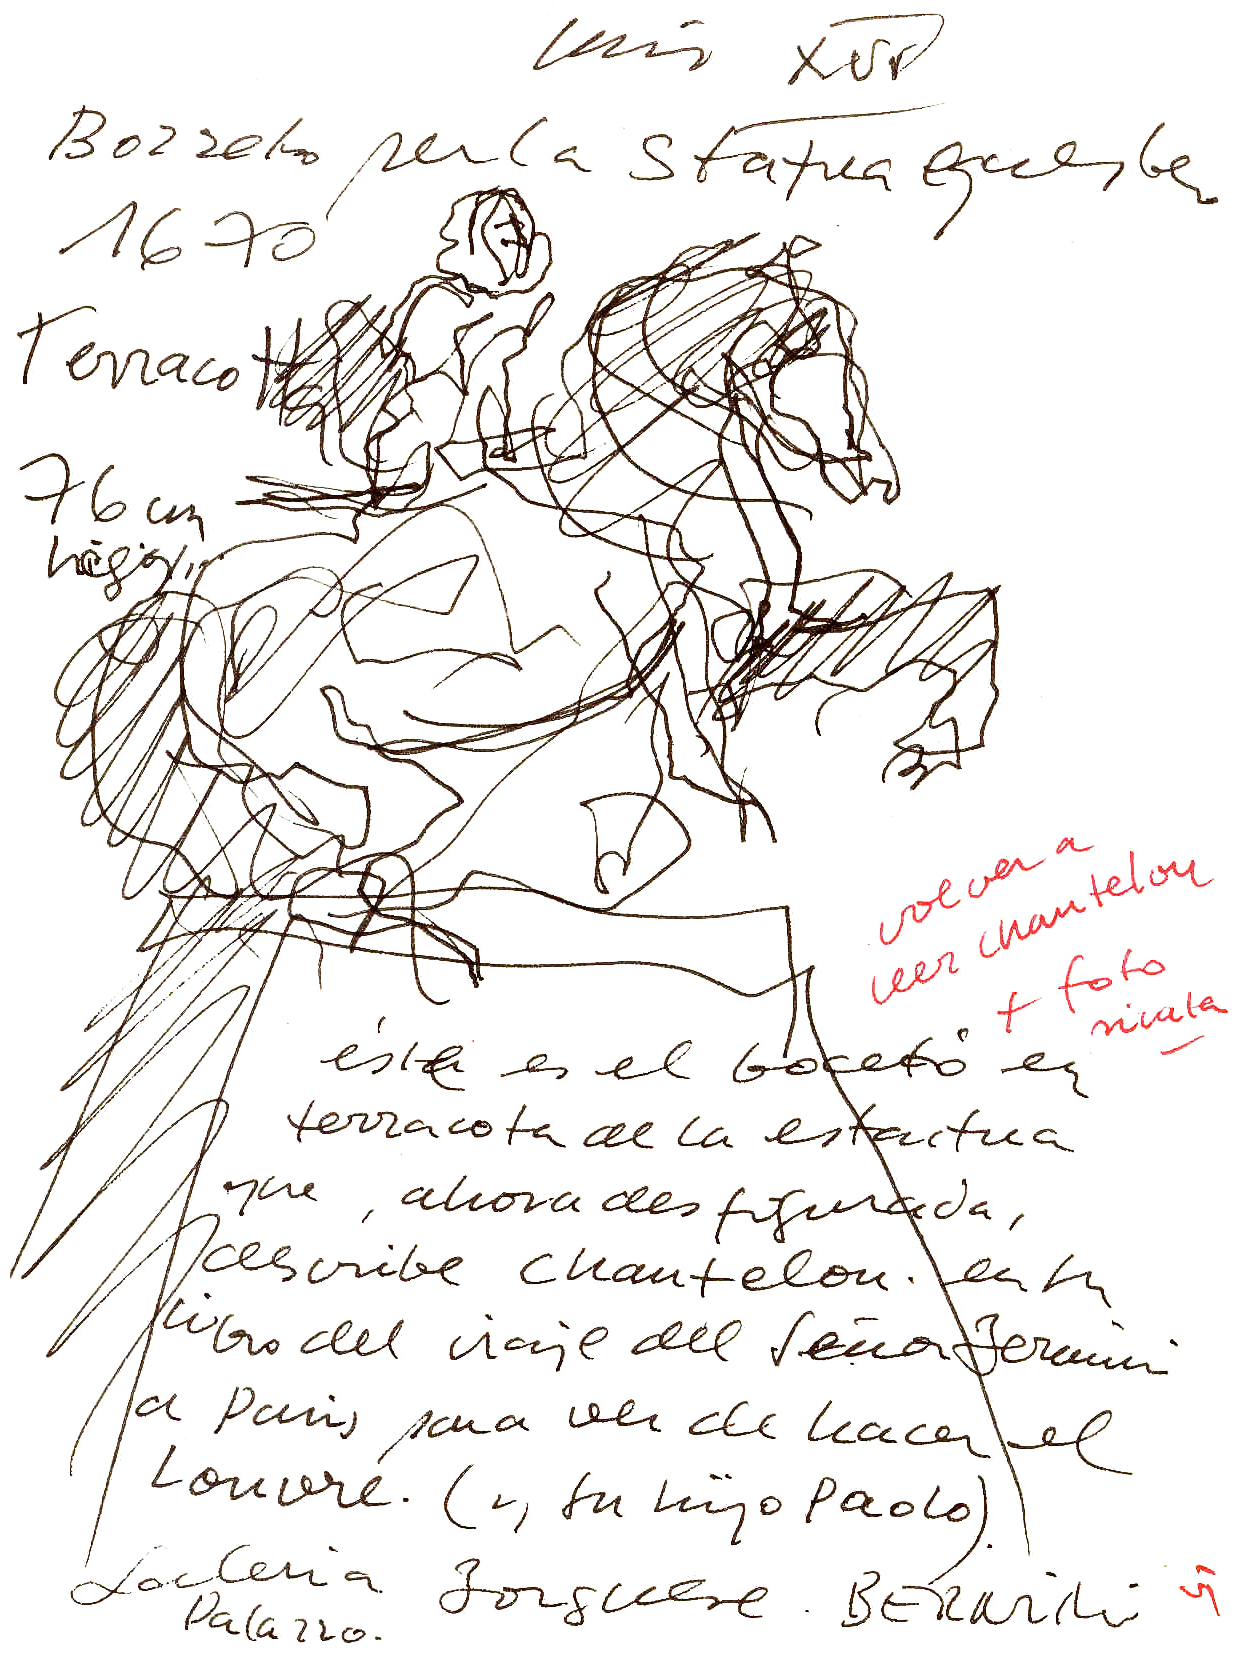 Luis XVI
Bozzeto per la Statua equestre
1670
Terracotta
76 cm
volver a
leer chantelou
+ foto
ésta es el boceto en
terracota de la estatua
que, ahora desfigurada,
describe chantelou. en su
libro del viaje del Señor Bernini
a Paris para ver de hacer el
Louvre. (y su hijo Paolo).
Galeria Borguese. BERNINI
Palazzo.